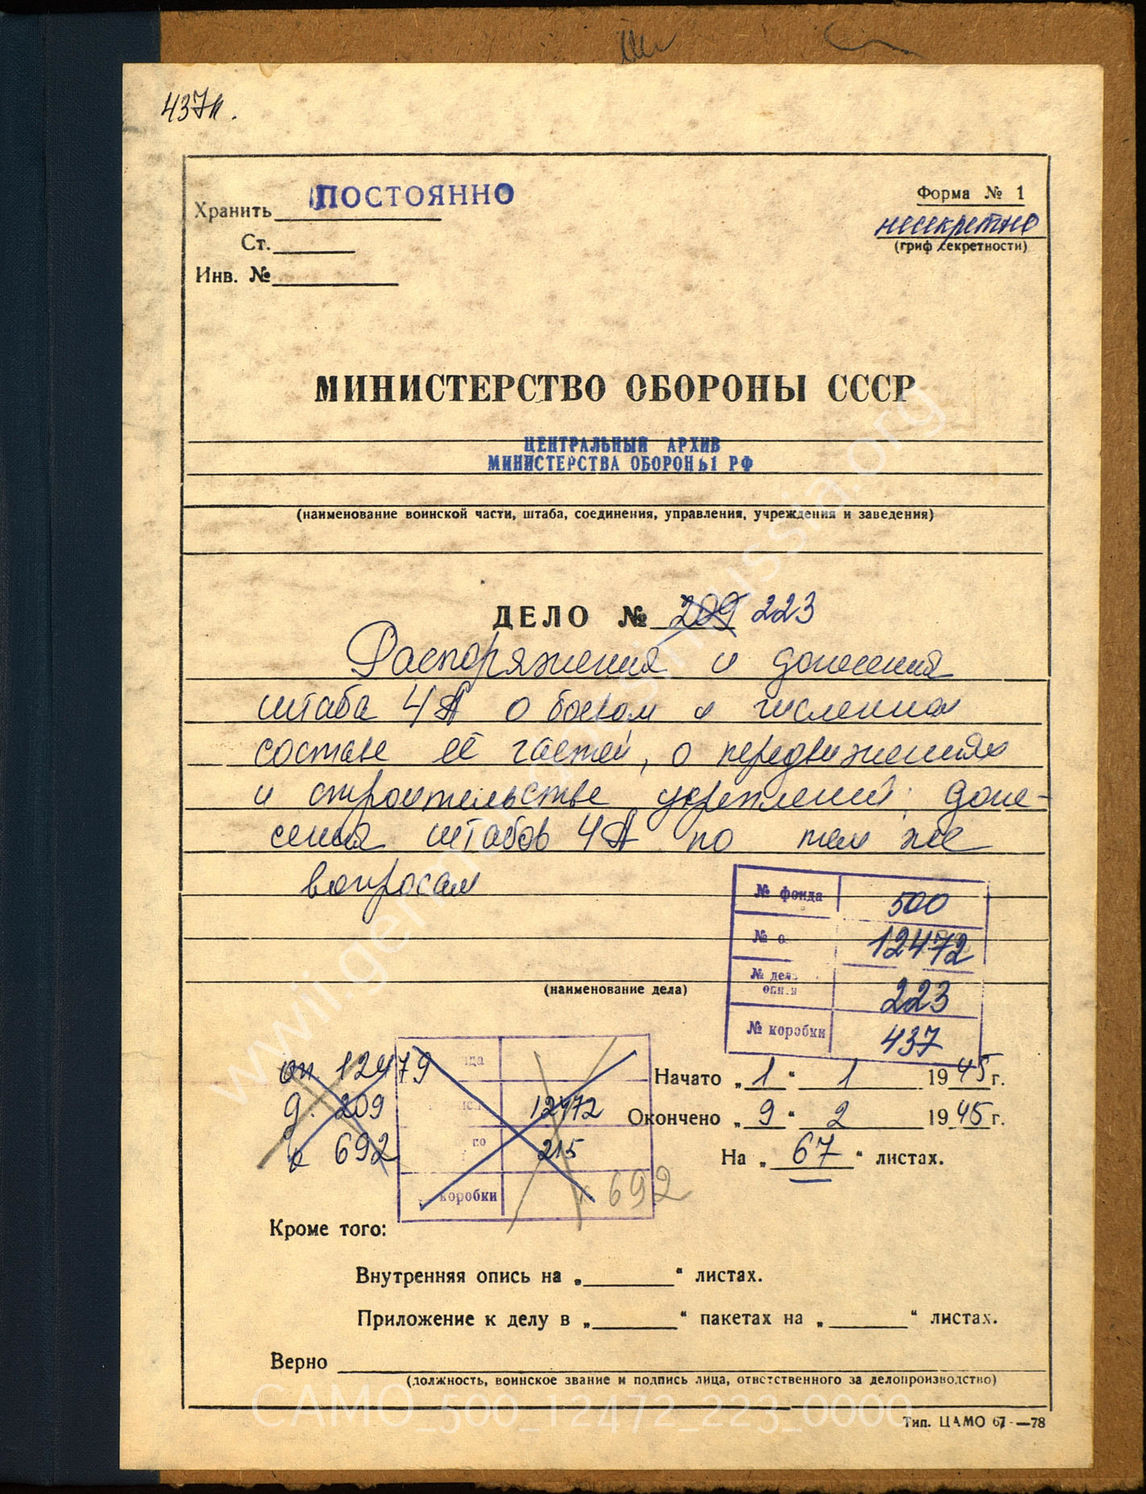 437к.
Хранить ПОСТОЯННО
Форма № 1
несекретно
(гриф секретности)
Ст.
Инв. №
МИНИСТЕРСТВО ОБОРОНЫ СССР
ЦЕНТРАЛЬНЫЙ АРХИВ
МИНИСТЕРСТВА ОБОРОНЫ РФ
(наименование воинской части, штаба, соединения, управления, учреждения и заведения)
ДЕЛО № 209 223
Распоряжения и донесения
штаба 4А о боевом и численном
составе её частей, о передвижениях
и строительстве укреплений; доне-
сения штабов 4А по тем же
вопросам
№ фонда 500
№ о 12472
№ дела описи 223
№ коробки 437
(наименование дела)
оп. 12479
д. 209
к 692
12472
по 215
коробки к 692
Начато „1“ 1 1945 г.
Окончено „9“ 2 1945 г.
На „67“ листах.
Кроме того:
Внутренняя опись на „ “ листах.
Приложение к делу в „ “ пакетах на „ “ листах.
Верно
(должность, воинское звание и подпись лица, ответственного за делопроизводство)
CAMO_500_12472_223_0000
Тип. ЦАМО 67—78